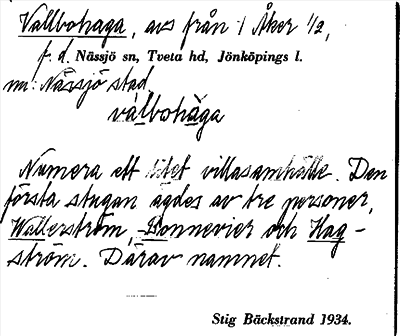 Vallbohaga, avs från 1 Åker 1/2,
f. d. Nässjö sn, Tveta hd, Jönköpings l.
nu: Nässjö stad.
vàlbohåga
Numera ett litet villasamhälle. Den
första stugan ägdes av tre personer,
Wallerström, Bonnevier och Hag-
ström. Därav namnet.
Stig Bäckstrand 1934.